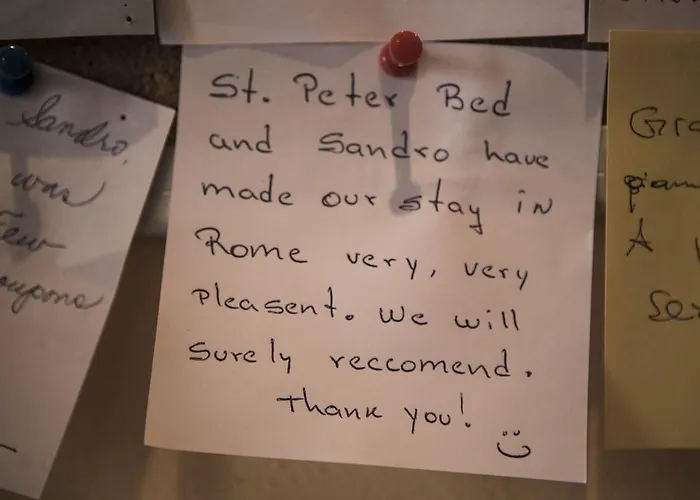 Sandro,
was
Few
St. Peter Bed
and Sandro have
made our stay in
Rome very, very
pleasent. We will
surely reccomend.
Thank you!
A